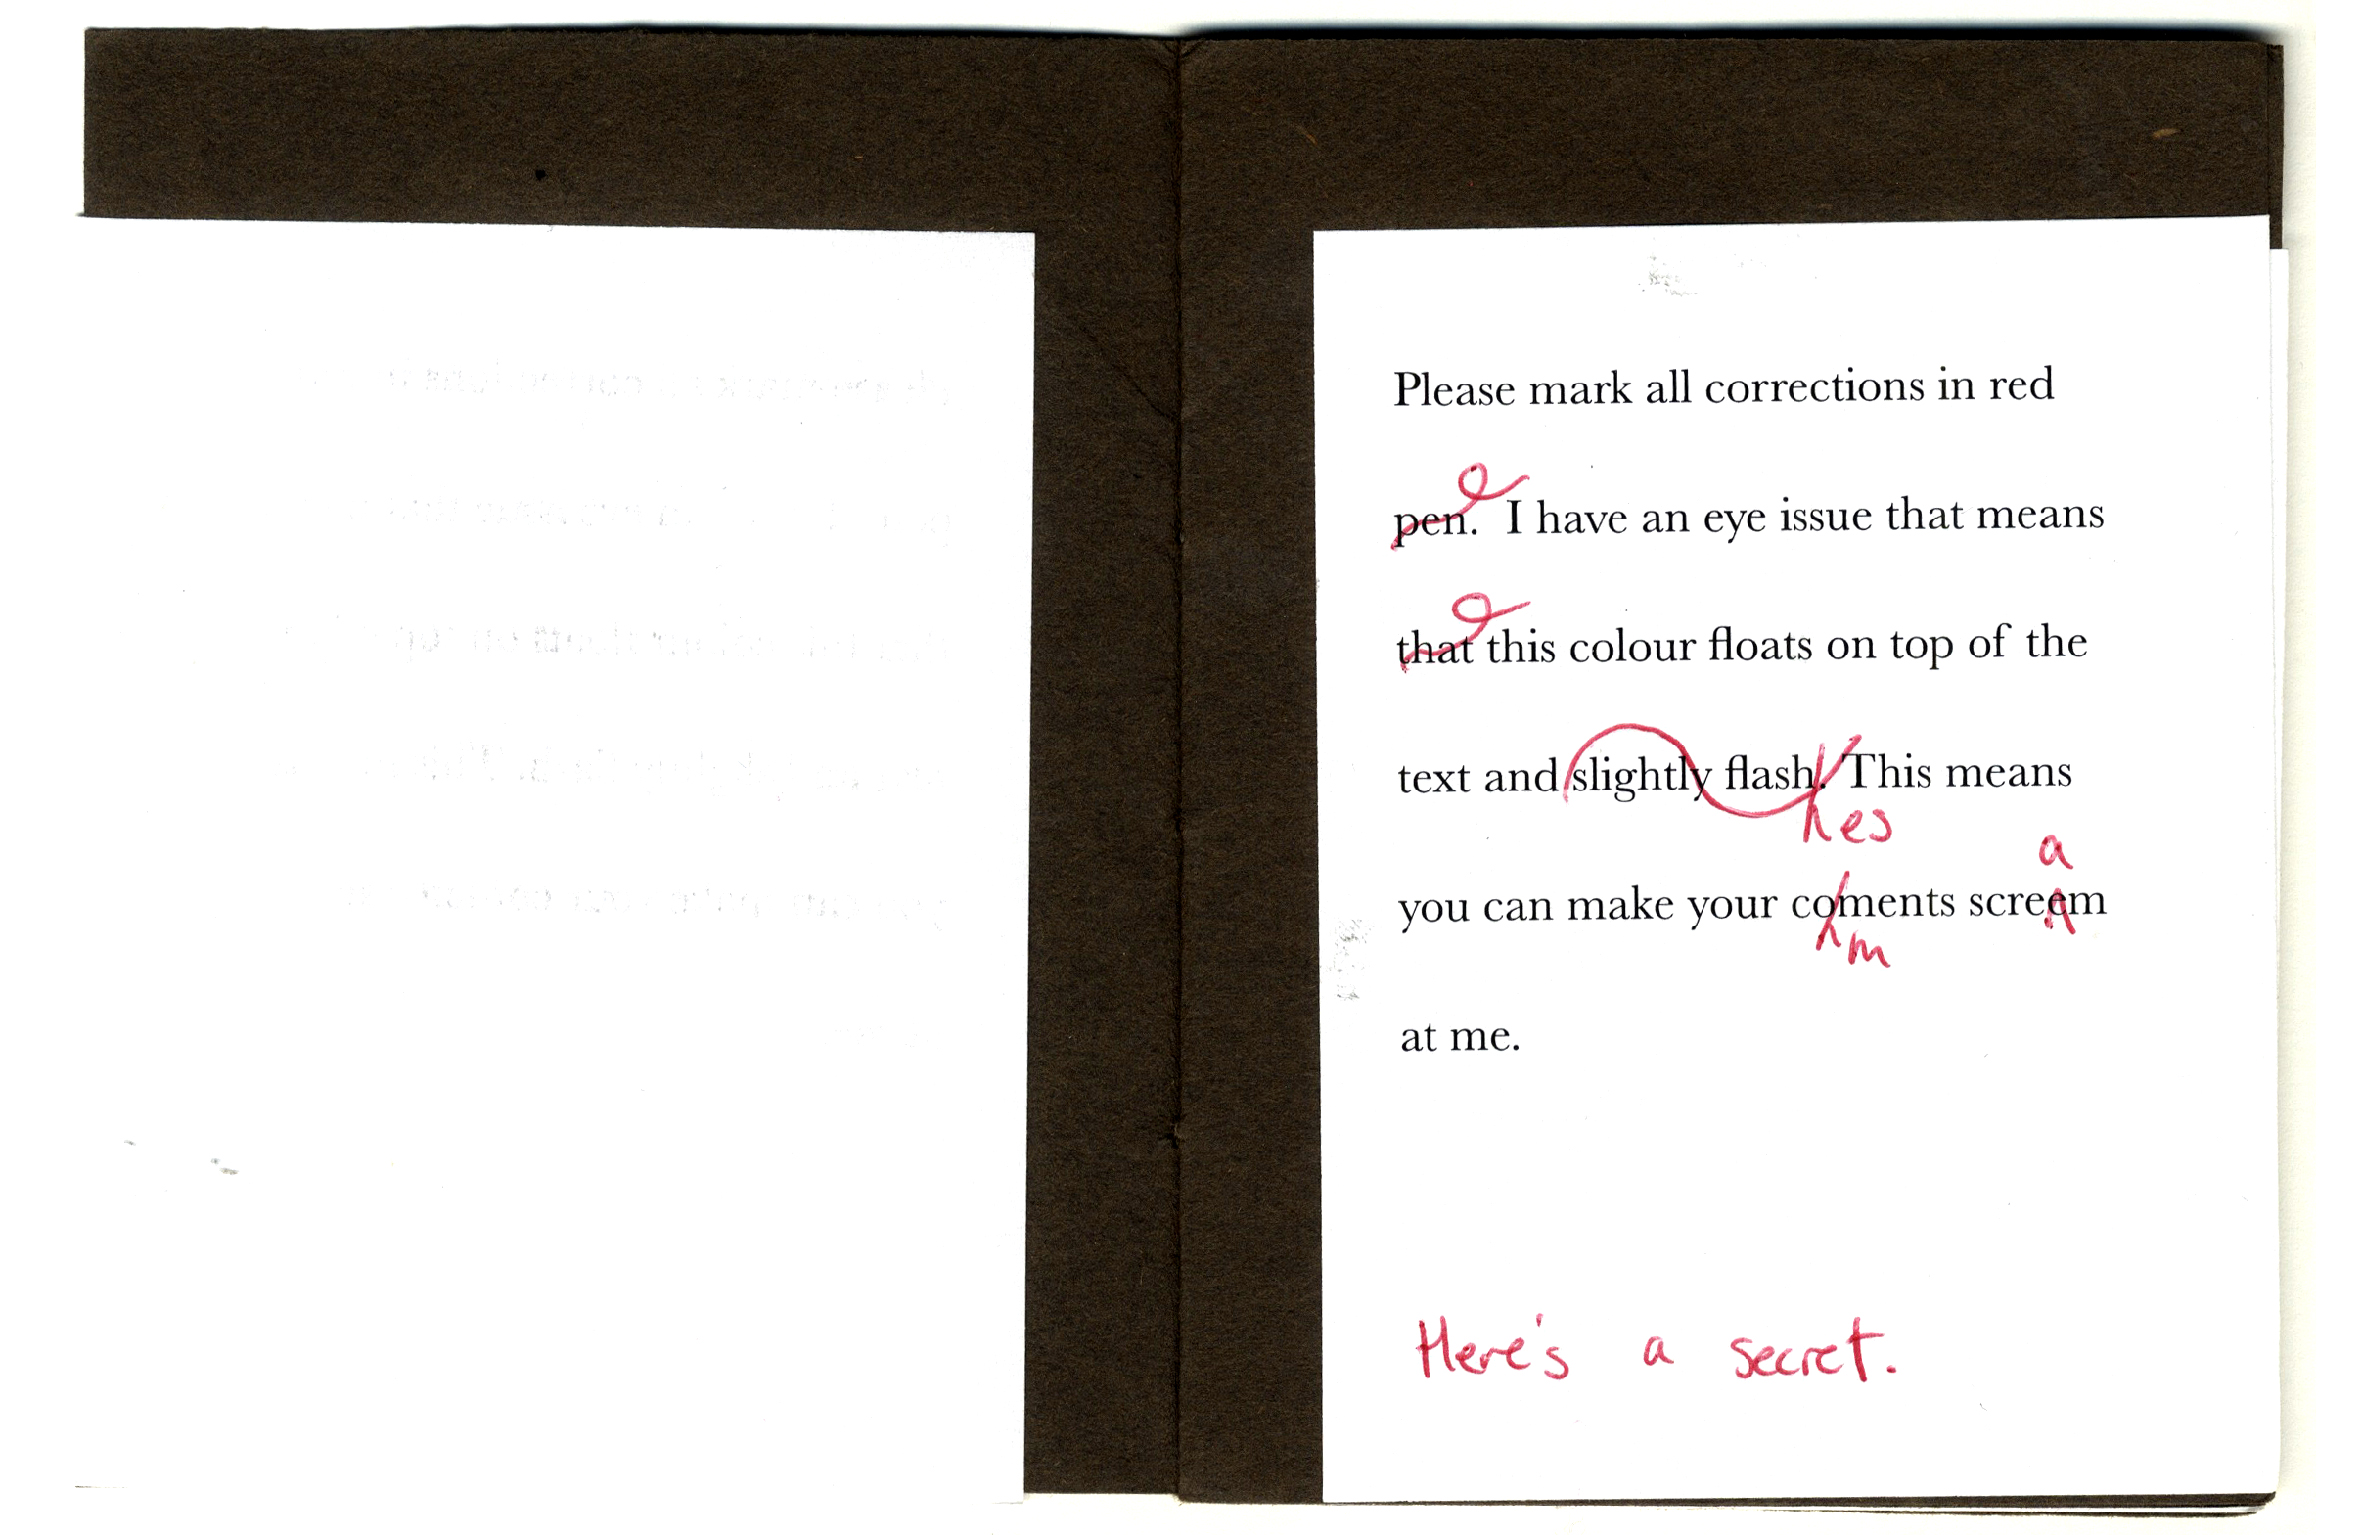 Please mark all corrections in red
pen. I have an eye issue that means
that this colour floats on top of the
text and slightly flash. This means
es
a
you can make your coments screem
m
at me.
Here's a secret.